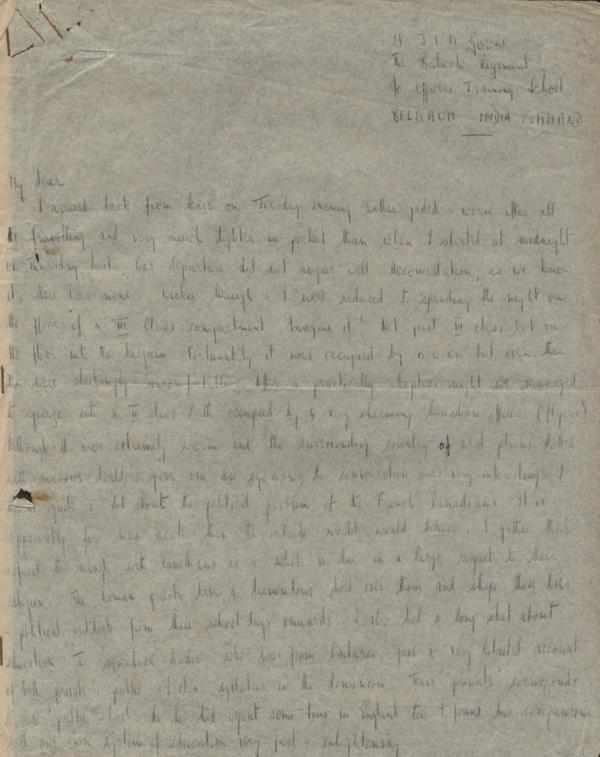 Lt J I M
The Baluch Regiment
c/o Officers Training School
BELGAUM INDIA COMMAND
My dear
I arrived back from leave on Tuesday evening rather jaded & worn after all
the travelling and very much lighter in pocket than when I started at midnight
on Thursday last. Our departure did not augur well. Accomodation, as we know
it, there was none. I was reduced to spending the night on
the floor of a III Class compartment. Imagine it! Not just III class but on
the floor into the bargain. Fortunately it was occupied by but even then
was uncomfortable. After a practically sleepless night we managed
to squeeze into a II class berth occupied by 4 very charming Canadian officers (Flyers)
Although it was extremely warm and the surrounding country of arid plains
with gave one an the conversation was very interesting. I
quite a lot about the political problem of the French Canadians. It is
apparently far more acute than the outside world would believe. I gather they
refuse to mix with Canadians as a which is due in a large respect to their
religion. The Roman priests have a tremendous hold over them and shape their lives
& political outlook from their school days onwards. I also had a long chat about
education. The squadron leader, who was from Ontario, gave a very detailed account
of both private & public systems in the dominion. Their private corresponds
to our 'public'. As he had spent some time in England too I found his comparisons
with our own system of education very just & enlightening.